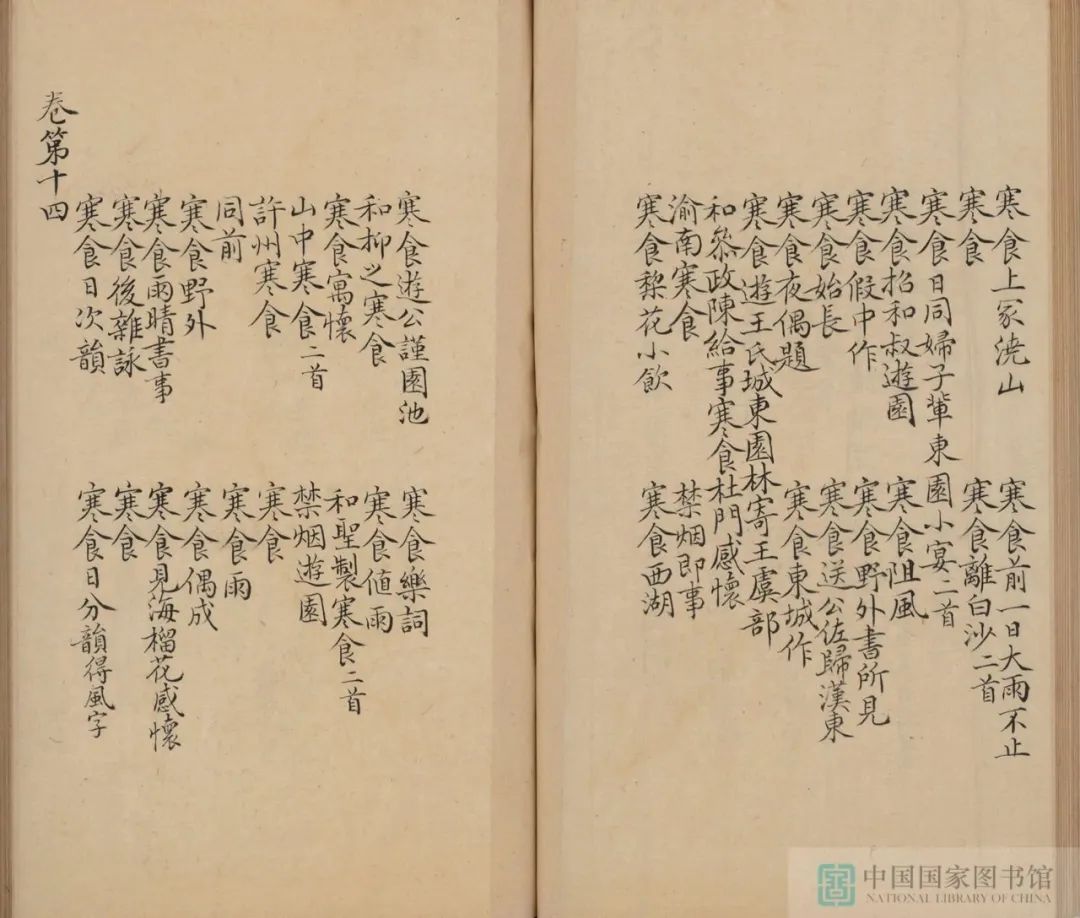 寒食上冢澆山
寒食前一日大雨不止
寒食
寒食離白沙二首
寒食日同婦子輩東園小宴二首
寒食招和叔遊園
寒食阻風
寒食假中作
寒食野外書所見
寒食始長
寒食送公佐歸漢東
寒食夜偶題
寒食東城作
寒食遊王氏城東園林寄王虞部
和叅政陳給事寒食杜門感懷
渝南寒食
禁烟即事
寒食棃花小飲
寒食西湖
寒食遊公謹園池
寒食樂詞
和抑之寒食
寒食值雨
寒食寓懷
和聖製寒食二首
山中寒食二首
禁烟遊園
許州寒食
寒食
同前
寒食雨
寒食野外
寒食偶成
寒食雨晴書事
寒食見海榴花感懷
寒食後雜詠
寒食
寒食日次韻
寒食日分韻得風字
卷第十四
中国国家图书馆
NATIONAL LIBRARY OF CHINA